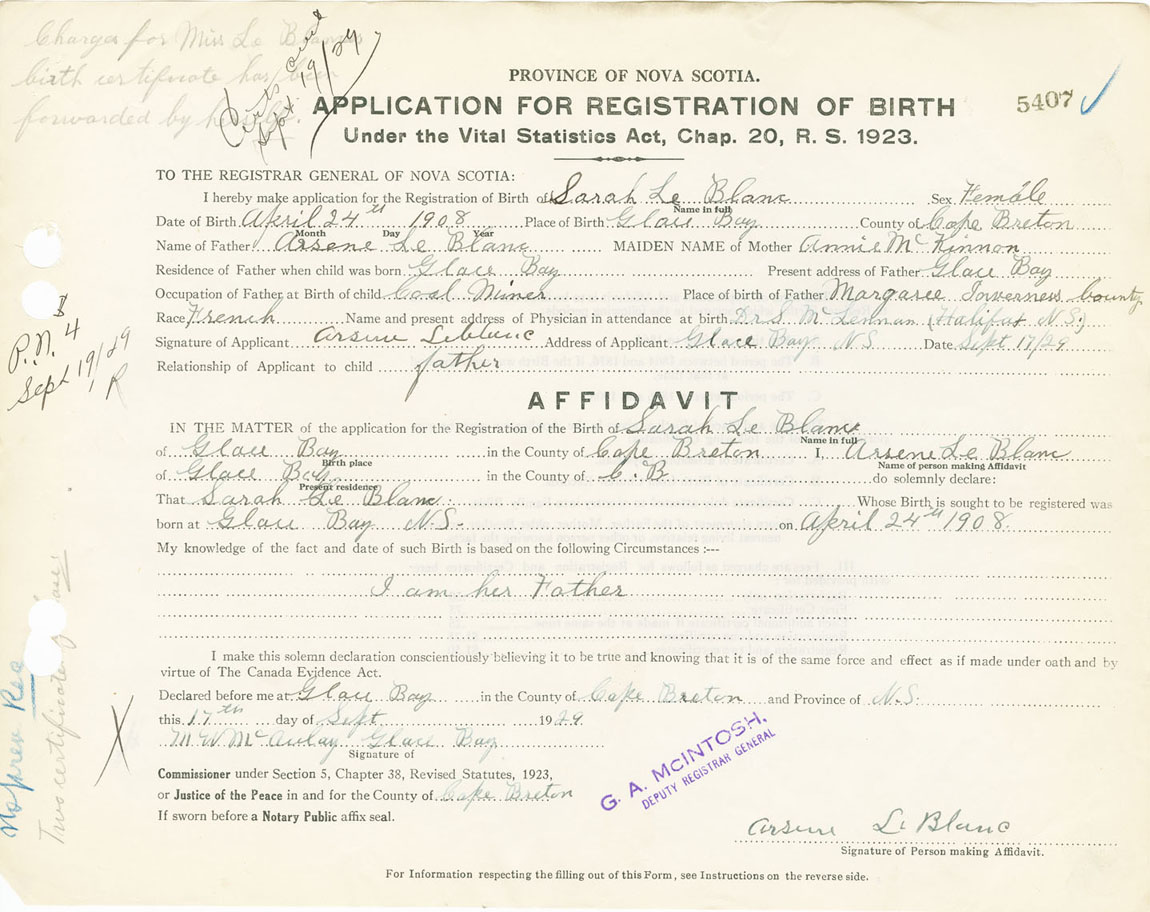 Charges for Miss Le Blanc
birth certificate has been
forwarded by
Sept 19/29
PROVINCE OF NOVA SCOTIA.
APPLICATION FOR REGISTRATION OF BIRTH
5407
Under the Vital Statistics Act, Chap. 20, R. S. 1923.
TO THE REGISTRAR GENERAL OF NOVA SCOTIA:
I hereby make application for the Registration of Birth of Sarah Le Blanc Sex Female
Name in full
Date of Birth April 24th 1908 Place of Birth Glace Bay County of Cape Breton
Month Day Year
Name of Father Arsene Le Blanc MAIDEN NAME of Mother Annie Mc Kinnon
Residence of Father when child was born Glace Bay Present address of Father Glace Bay
Occupation of Father at Birth of child Coal Miner Place of birth of Father Margaree Inverness County
Race French Name and present address of Physician in attendance at birth Dr S. McLennan (Halifax N.S.)
Signature of Applicant Arsene Leblanc Address of Applicant Glace Bay N S Date Sept 17/29
Relationship of Applicant to child father
P.N. 4
Sept 19/29
R
AFFIDAVIT
IN THE MATTER of the application for the Registration of the Birth of Sarah Le Blanc
Name in full
of Glace Bay in the County of Cape Breton I, Arsene Le Blanc
Birth place Name of person making Affidavit
of Glace Bay in the County of C.B. do solemnly declare:
Present residence
That Sarah Le Blanc Whose Birth is sought to be registered was
born at Glace Bay N.S. on April 24th 1908.
My knowledge of the fact and date of such Birth is based on the following Circumstances :---
I am her Father
I make this solemn declaration conscientiously believing it to be true and knowing that it is of the same force and effect as if made under oath and by
virtue of The Canada Evidence Act.
Declared before me at Glace Bay in the County of Cape Breton and Province of N.S.
this 17th day of Sept 1929
M W McAulay Glace Bay
Signature of
Commissioner under Section 5, Chapter 38, Revised Statutes, 1923,
or Justice of the Peace in and for the County of Cape Breton
If sworn before a Notary Public affix seal.
G. A. McINTOSH,
DEPUTY REGISTRAR GENERAL
Arsene Le Blanc
Signature of Person making Affidavit.
For Information respecting the filling out of this Form, see Instructions on the reverse side.
No prev Rec
Two certificates